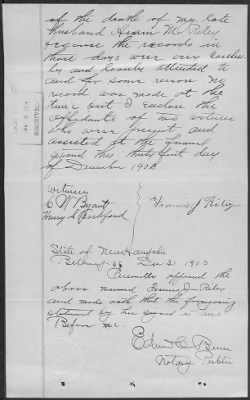 of the death of my late
husband Hiram M. Riley
because the records in
those days were very
and
and for some reason no
record was made at the
time but I enclose the
affidavits of two witness
who were present and
assisted at the funeral
given this thirty first day
of December 1903
witness
C W Bryant
Harry C Bickford
Frances J Riley
State of New Hampshire
ss Dec 31 1903
Personally appeared the
above named Frances J. Riley
and made oath that the foregoing
statement by her signed is true
Before me.
Notary Public